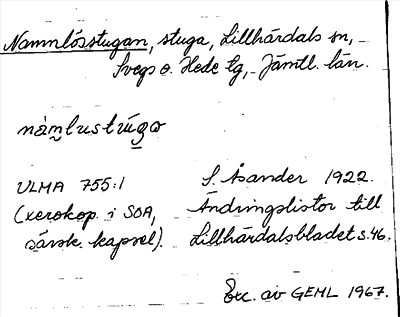 Namnlösstugan, stuga, Lillhärdals sn,
Svegs o. Hede tg, Jämtl. län.
nàm̰lustúgo
ULMA 755:1 S. Åsander 1922.
(xerokop. i SOA, Ändringslistor till
särsk. kapsel). Lillhärdalsbladet s. 46.
Exc. av GEHL 1967.